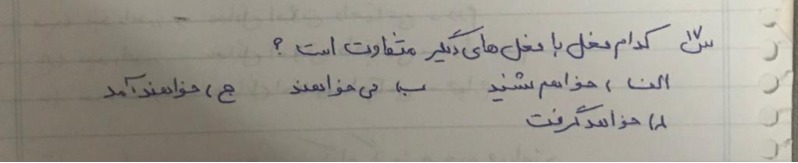 س۱۷ کدام فعل با فعل های دیگر متفاوت است ؟
الف ) خواهم شنید ب) می خواهند ج ) خواهند آمد
د) خواهد گرفت